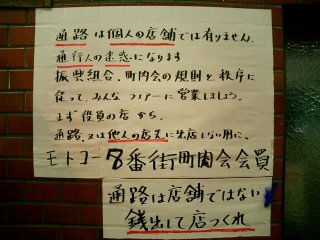 通路は個人の店舗では有りません。
通行人の迷惑になります
振興組合、町内会の規則と秩序に
従って、みんなフェアーに営業しましょう。
まず役員の店から、
通路、又は他人の店先に出店しない用に。
モトコー8番街町内会会員
通路は店舗ではない
銭出して店つくれ